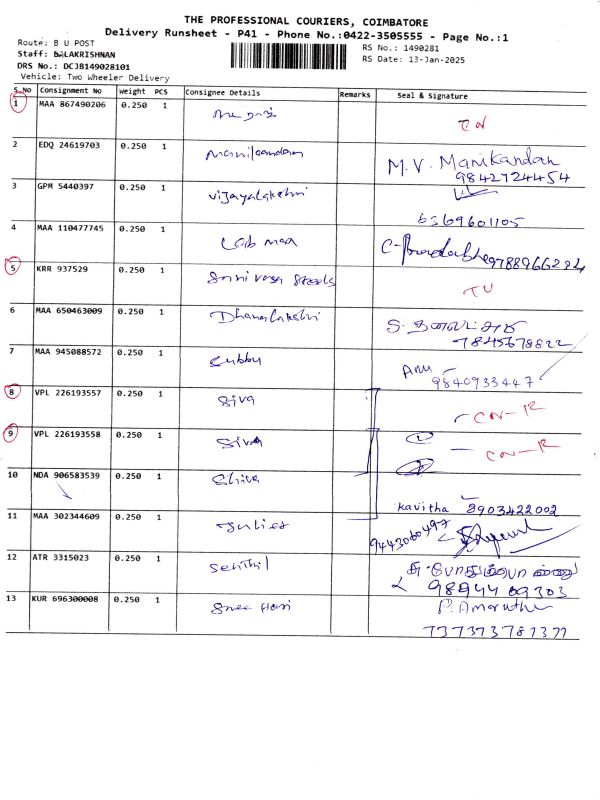 THE PROFESSIONAL COURIERS, COIMBATORE
Delivery Runsheet - P41 - Phone No.:0422-3505555 - Page No.:1
Route: B U POST
RS No.: 1490281
Staff: BALAKRISHNAN
RS Date: 13-Jan-2025
DRS No.: DCJB149028101
Vehicle: Two Wheeler Delivery
S.No Consignment No Weight PCS Consignee Details Remarks Seal & Signature
1 MAA 867490206 0.250 1
2 EDQ 24619703 0.250 1 Manikandan M.V. Manikandan
9842724454
3 GPM 5440397 0.250 1 Vijayalakshmi
6369601105
4 MAA 110477745 0.250 1 Lab maa 9788966294
5 KRR 937529 0.250 1 Srinivasa Steels
6 MAA 650463009 0.250 1 Dhanalakshmi
7845678822
7 MAA 945088572 0.250 1 Subbu Anu
9840933447
8 VPL 226193557 0.250 1 Siva CN-R
9 VPL 226193558 0.250 1 Siva CN-R
10 NDA 906583539 0.250 1 Shiva
Kavitha 8903422002
11 MAA 302344609 0.250 1
12 ATR 3315023 0.250 1 Senthil
9894409303
13 KUR 696300008 0.250 1 Sree Hari P. Amarutha